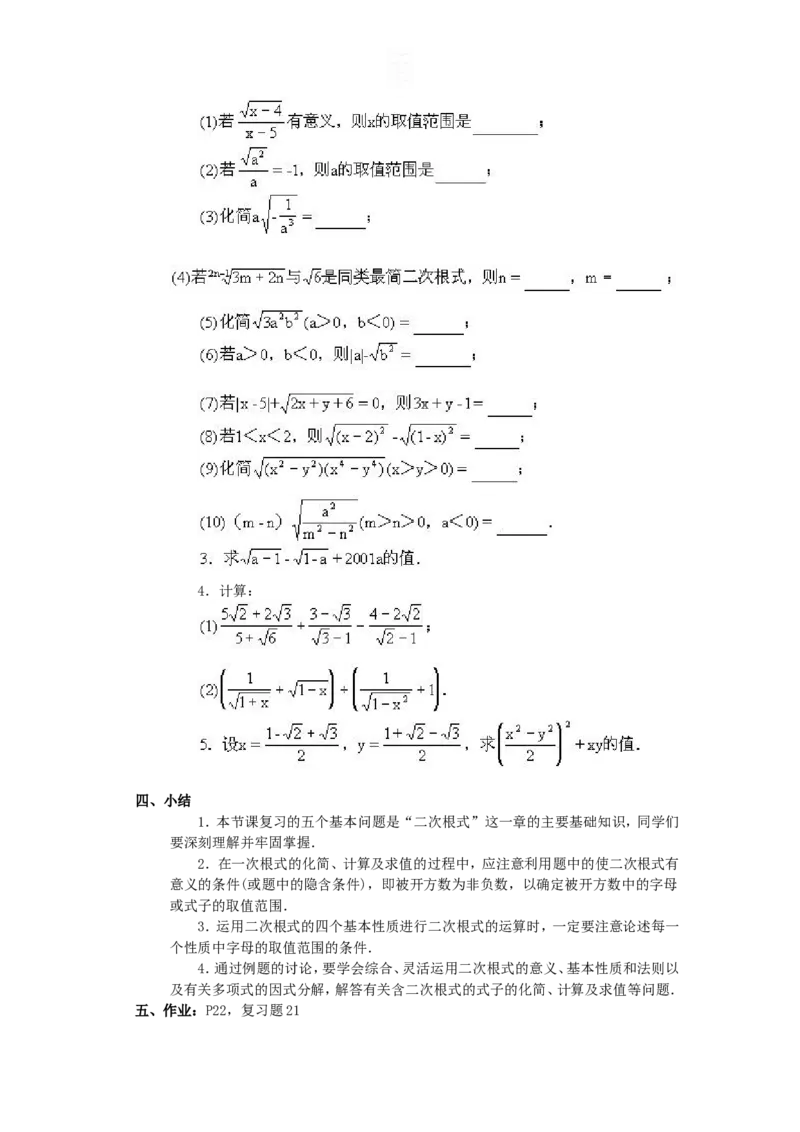 (1)若√(x-4)/(x-5)有意义，则x的取值范围是______；
(2)若√(a²)/a=-1，则a的取值范围是______；
(3)化简a√(-1/a³)=______；
(4)若²ⁿ⁻¹√(3m+2n)与√6是同类最简二次根式，则n=_____，m=_____；
(5)化简√(3a²b²)(a＞0，b＜0)=______；
(6)若a＞0，b＜0，则|a|-√(b²)=______；
(7)若|x-5|+√(2x+y+6)=0，则3x+y-1=_____；
(8)若1＜x＜2，则√((x-2)²)-√((1-x)²)=_____；
(9)化简√((x²-y²)(x⁴-y⁴))(x＞y＞0)=_____；
(10)（m-n）√(a²/(m²-n²))(m＞n＞0，a＜0)=______．
3．求√(a-1)-√(1-a)+2001a的值．
4．计算：
(1)(5√2+2√3)/(5+√6)+(3-√3)/(√3-1)-(4-2√2)/(√2-1)；
(2)(1/√(1+x)+√(1-x))+(1/√(1-x²)+1)．
5．设x=(1-√2+√3)/2，y=(1+√2-√3)/2，求((x²-y²)/2)²+xy的值．
四、小结
1．本节课复习的五个基本问题是“二次根式”这一章的主要基础知识，同学们
要深刻理解并牢固掌握．
2．在一次根式的化简、计算及求值的过程中，应注意利用题中的使二次根式有
意义的条件(或题中的隐含条件)，即被开方数为非负数，以确定被开方数中的字母
或式子的取值范围．
3．运用二次根式的四个基本性质进行二次根式的运算时，一定要注意论述每一
个性质中字母的取值范围的条件．
4．通过例题的讨论，要学会综合、灵活运用二次根式的意义、基本性质和法则以
及有关多项式的因式分解，解答有关含二次根式的式子的化简、计算及求值等问题．
五、作业：P22，复习题21